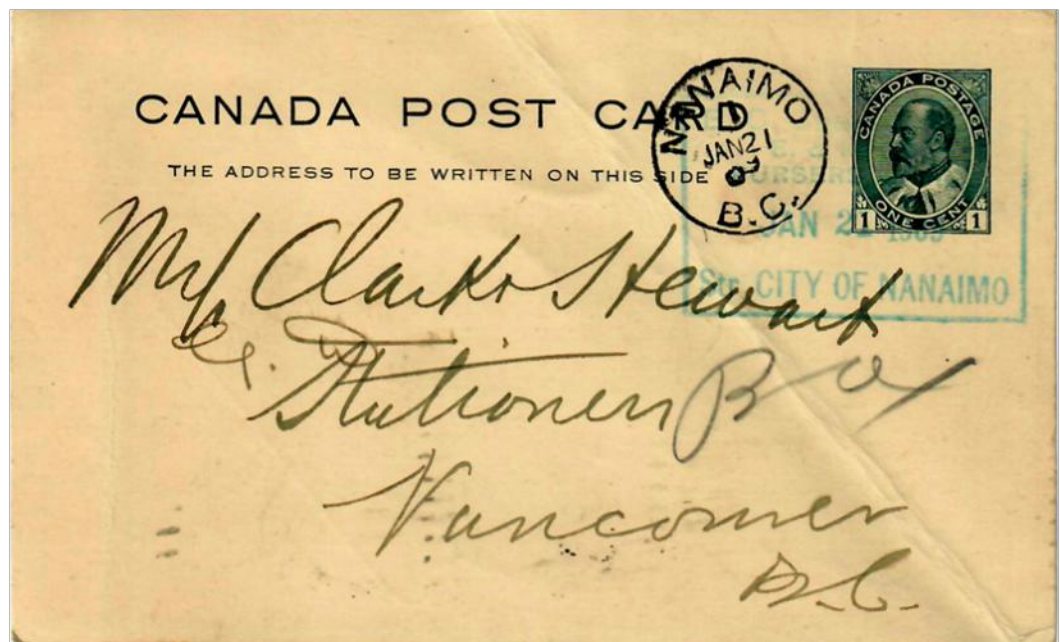 CANADA POST CARD
THE ADDRESS TO BE WRITTEN ON THIS SIDE
NANAIMO
1
JAN 21
09
B.C.
CANADA POSTAGE
1 ONE CENT 1
PURSER
JAN 21 1909
Str. CITY OF NANAIMO
Clarke Stewart
Stationers
Vancouver
B.C.